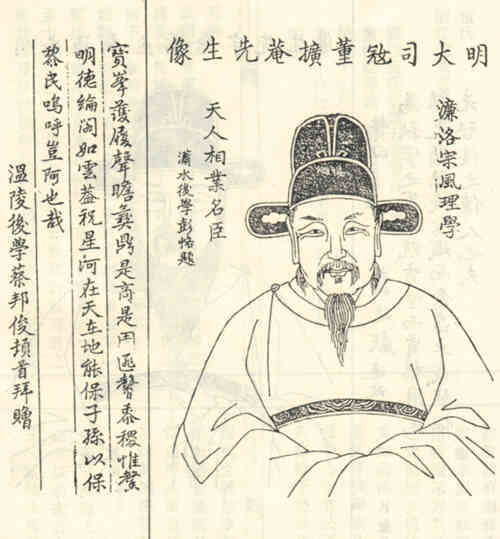 明大司寇董擴菴先生像
濂洛宗風理學
天人相業名臣
瀟水後學彭題
寶峯履聲瞻彝鼎是商是周匪馨黍稷惟馨
明德綸閣如雲蓋祝星河在天在地能保子孫以保
黎民嗚呼豈阿也哉
溫陵後學蔡邦俊頓首拜贈